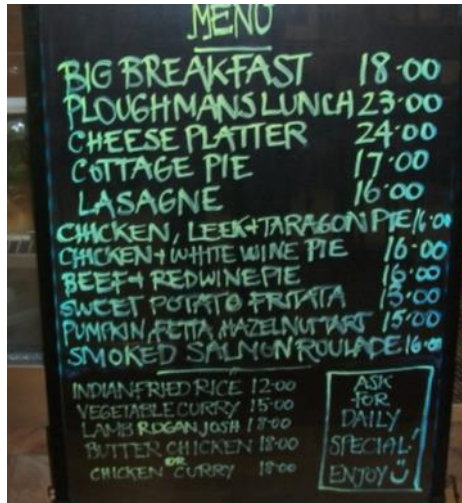 MENU
BIG BREAKFAST 18·00
PLOUGHMANS LUNCH 23·00
CHEESE PLATTER 24·00
COTTAGE PIE 17·00
LASAGNE 16·00
CHICKEN, LEEK+TARAGON PIE 16·00
CHICKEN + WHITE WINE PIE 16·00
BEEF + RED WINE PIE 16·00
SWEET POTATO FRITATA 15·00
PUMPKIN, FETTA, HAZELNUT TART 15·00
SMOKED SALMON ROULADE 16·00
INDIAN FRIED RICE 12·00
VEGETABLE CURRY 15·00
LAMB ROGAN JOSH 18·00
BUTTER CHICKEN 18·00
OR
CHICKEN CURRY 18·00
ASK
FOR
DAILY
SPECIAL!
ENJOY